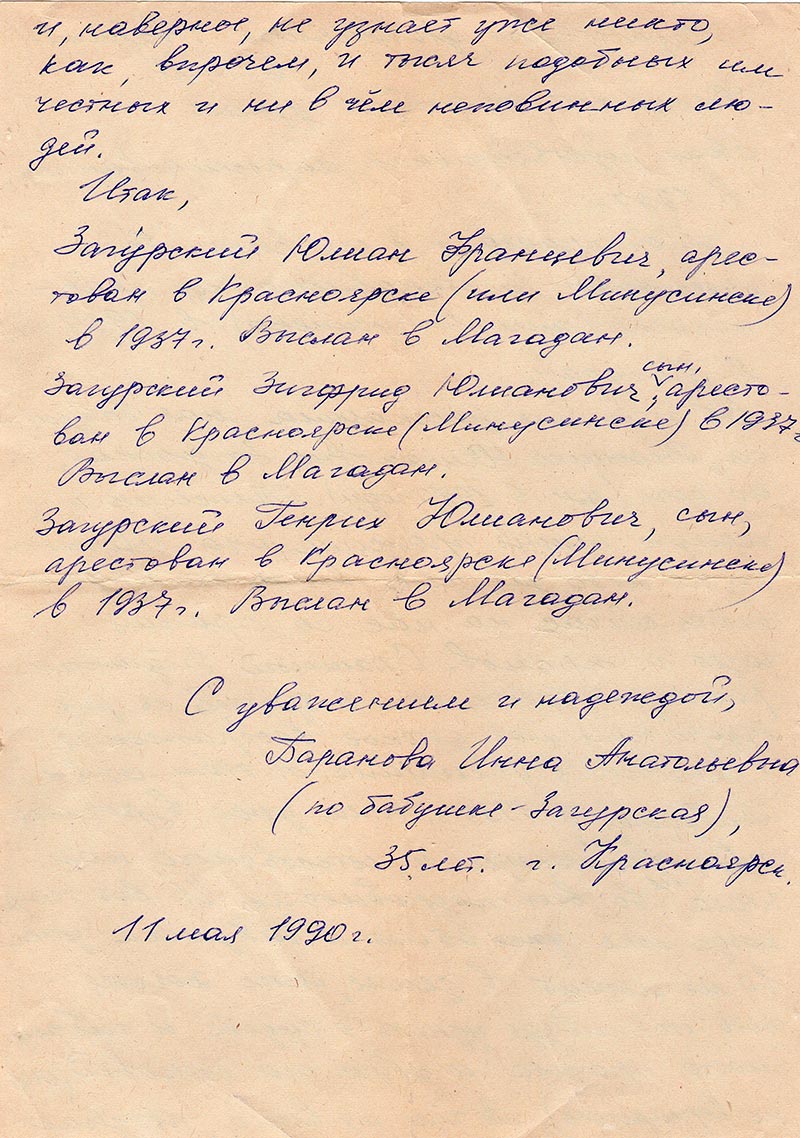 и, наверное, не узнает уже никто,
как, впрочем, и тысяч подобных им
честных и ни в чём неповинных лю-
дей.
Итак,
Загурский Юлиан Францевич, арес-
тован в Красноярске (или Минусинске)
в 1937г. Выслан в Магадан.
сын,
Загурский Зигфрид Юлианович, аресто-
ван в Красноярске (Минусинске) в 1937г
Выслан в Магадан.
Загурский Генрих Юлианович, сын,
арестован в Красноярске (Минусинске)
в 1937г. Выслан в Магадан.
С уважением и надеждой,
Баранова Инна Анатольевна
(по бабушке - Загурская),
35 лет. г. Красноярск.
11 мая 1990г.